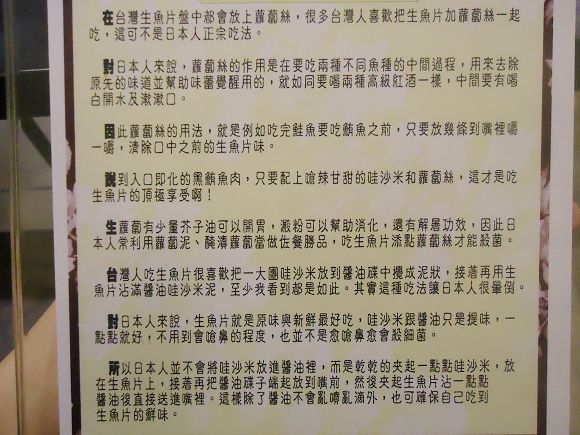 在台灣生魚片盤中都會放上蘿蔔絲，很多台灣人喜歡把生魚片加蘿蔔絲一起
吃，這可不是日本人正宗吃法。
對日本人來說，蘿蔔絲的作用是在要吃兩種不同魚種的中間過程，用來去除
原先的味道並幫助味蕾覺醒用的，就如同要喝兩種高級紅酒一樣，中間要有喝
白開水及漱漱口。
因此蘿蔔絲的用法，就是例如吃完鮭魚要吃鮪魚之前，只要放幾條到嘴裡嚼
一嚼，清除口中之前的生魚片味。
說到入口即化的黑鮪魚肉，只要配上嗆辣甘甜的哇沙米和蘿蔔絲，這才是吃
生魚片的頂極享受啊！
生蘿蔔有少量芥子油可以開胃，澱粉可以幫助消化，還有解膩功效，因此日
本人常利用蘿蔔泥、醃漬蘿蔔當做佐餐勝品，吃生魚片添點蘿蔔絲才能殺菌。
台灣人吃生魚片很喜歡把一大團哇沙米放到醬油碟中攪成泥狀，接著再用生
魚片沾滿醬油哇沙米泥，至少我看到都是如此。其實這種吃法讓日本人很暈倒。
對日本人來說，生魚片就是原味與新鮮最好吃，哇沙米跟醬油只是提味，一
點點就好，不用到會嗆鼻的程度，也並不是愈嗆鼻愈會殺細菌。
所以日本人並不會將哇沙米放進醬油裡，而是乾乾的夾起一點點哇沙米，放
在生魚片上，接著再把醬油碟子端起放到嘴前，然後夾起生魚片沾一點點
醬油後直接送進嘴裡。這樣除了醬油不會亂噴亂滴外，也可確保自己吃到
生魚片的鮮味。